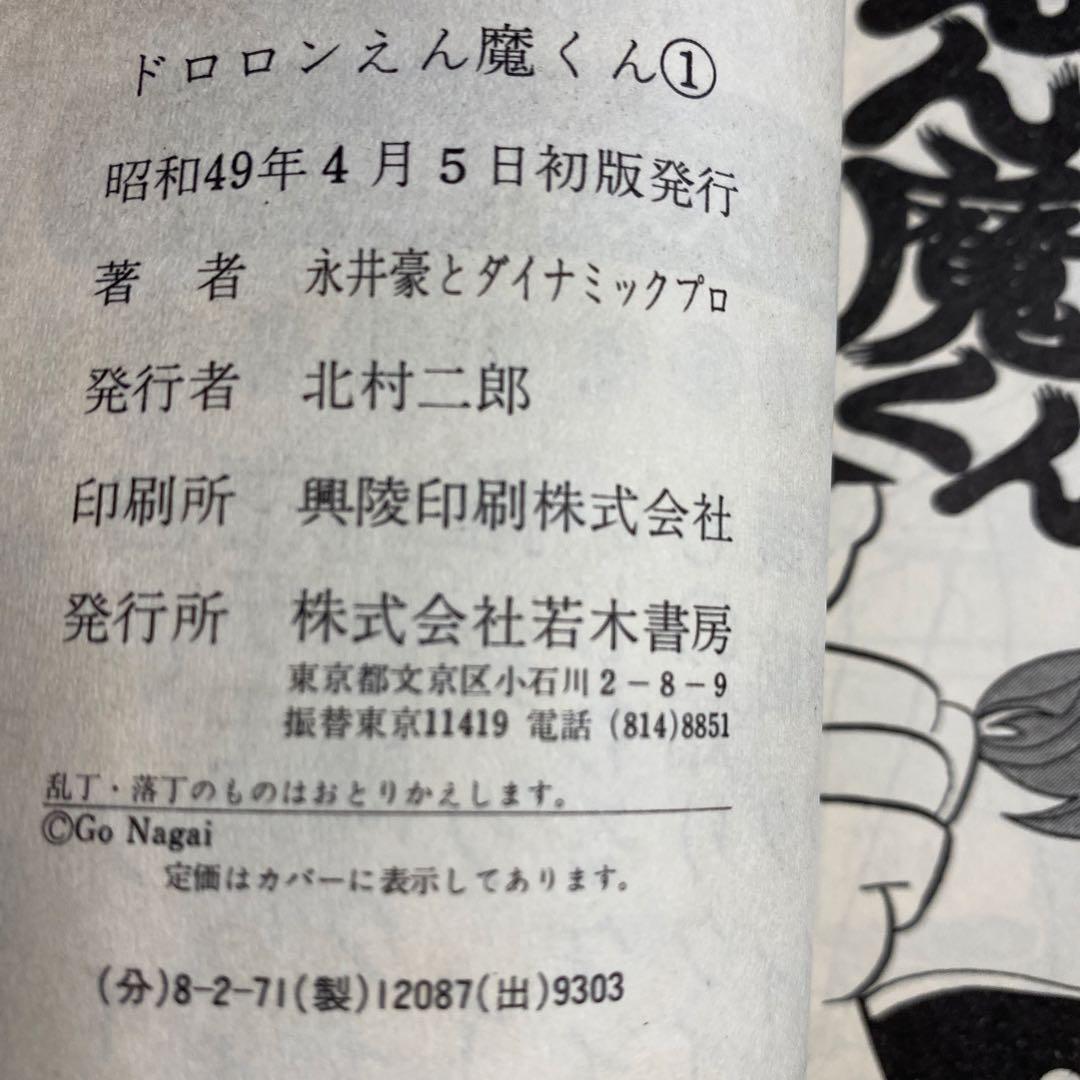 ドロロンえん魔くん①
昭和49年4月5日初版発行
著者 永井豪とダイナミックプロ
発行者 北村二郎
印刷所 興陵印刷株式会社
発行所 株式会社若木書房
東京都文京区小石川2－8－9
振替東京11419 電話 (814)8851
乱丁・落丁のものはおとりかえします。
©Go Nagai
定価はカバーに表示してあります。
(分)8-2-71(製)12087(出)9303
ん魔くん